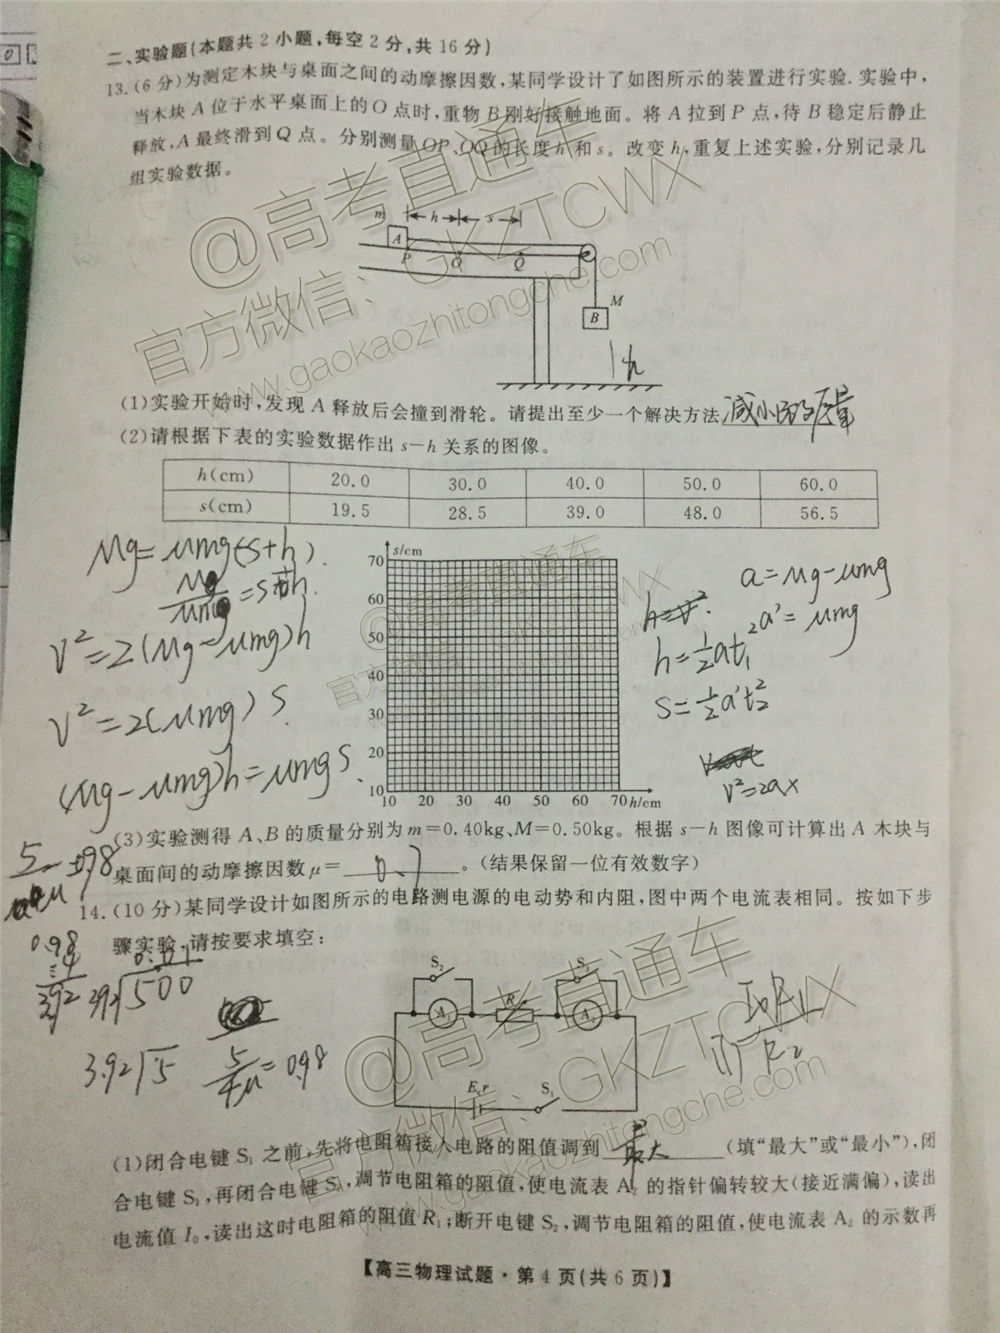 二、实验题(本题共2小题,每空2分,共16分)
13.(6分)为测定木块与桌面之间的动摩擦因数,某同学设计了如图所示的装置进行实验.实验中,
当木块A位于水平桌面上的O点时,重物B刚好接触地面。将A拉到P点,待B稳定后静止
释放,A最终滑到Q点。分别测量OP、OQ的长度h和s。改变h,重复上述实验,分别记录几
组实验数据。
m h s
A
P O Q
M
B
h
(1)实验开始时,发现A释放后会撞到滑轮。请提出至少一个解决方法减小B的质量
(2)请根据下表的实验数据作出s—h关系的图像。
h(cm) 20.0 30.0 40.0 50.0 60.0
s(cm) 19.5 28.5 39.0 48.0 56.5
Mg=μmg(s+h)
V²=2(Mg-μmg)h
V²=2(μmg)S
(Mg-μmg)h=μmgs
s/cm
70
60
50
40
30
20
10
10 20 30 40 50 60 70 h/cm
a=Mg-μmg
a'=μmg
h=½at₁²
S=½a't₂²
V²=2ax
(3)实验测得A、B的质量分别为m=0.40kg、M=0.50kg。根据s—h图像可计算出A木块与
桌面间的动摩擦因数μ=。(结果保留一位有效数字)
14.(10分)某同学设计如图所示的电路测电源的电动势和内阻,图中两个电流表相同。按如下步
骤实验,请按要求填空:
0.98
3.92
500
3.92 5
5/4μ=0.98
S₂
A₁ R A₂
E,r S₁
(1)闭合电键S₁之前,先将电阻箱接入电路的阻值调到最大(填“最大”或“最小”),闭
合电键S₁,再闭合电键S₂,调节电阻箱的阻值,使电流表A₂的指针偏转较大(接近满偏),读出
电流值I₀,读出这时电阻箱的阻值R₁;断开电键S₂,调节电阻箱的阻值,使电流表A₂的示数再
【高三物理试题·第4页(共6页)】
@高考直通车
官方微信、GKZTCWX
www.gaokaozhitongche.com
@高考直通车
官方微信、GKZTCWX
@高考直通车
官方微信、GKZTCWX
www.gaokaozhitongche.com